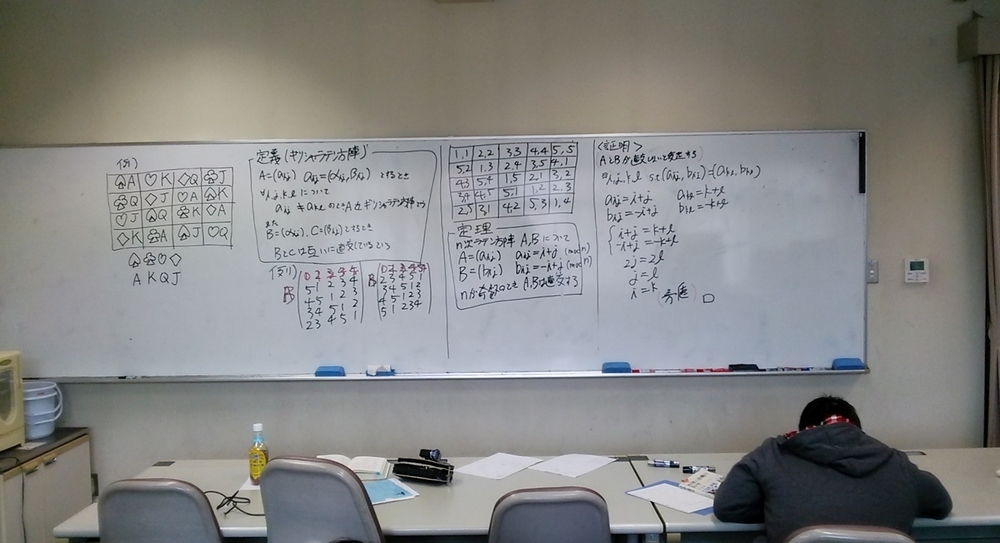 例)
♤A ♡K ◇Q ♧J
♧Q ◇J ♡A ♤K
♡J ♤Q ♧K ◇A
◇K ♧A ♤J ♡Q
♤ ♧ ♡ ◇
A K Q J
定義(ギリシャラテン方陣)
A=(aij) aij=(αij,βij) とするとき
∀i,j,k,l について
aij ≠ akl のとき A をギリシャラテン方陣
また
B=(αij), C=(βij) とするとき
BとCは互いに直交しているという
例)
5 1 2 3 4
4 5 1 2 3
3 4 5 1 2
2 3 4 5 1
2 3 4 5 1
3 4 5 1 2
4 5 1 2 3
5 1 2 3 4
1,1 2,2 3,3 4,4 5,5
5,2 1,3 2,4 3,5 4,1
4,3 5,4 1,5 2,1 3,2
3,4 4,5 5,1 1,2 2,3
2,5 3,1 4,2 5,3 1,4
定理
n次ラテン方陣 A,B について
A=(aij) aij=i+j (mod n)
B=(bij) bij=-i+j (mod n)
nが奇数のとき A,Bは直交する
<証明>
AとBが直交しないと仮定する
∃i,j,k,l st (aij,bij)=(akl,bkl)
aij=i+j akl=k+l
bij=-i+j bkl=-k+l
i+j=k+l
-i+j=-k+l
2j=2l
j=l
i=k 矛盾 □